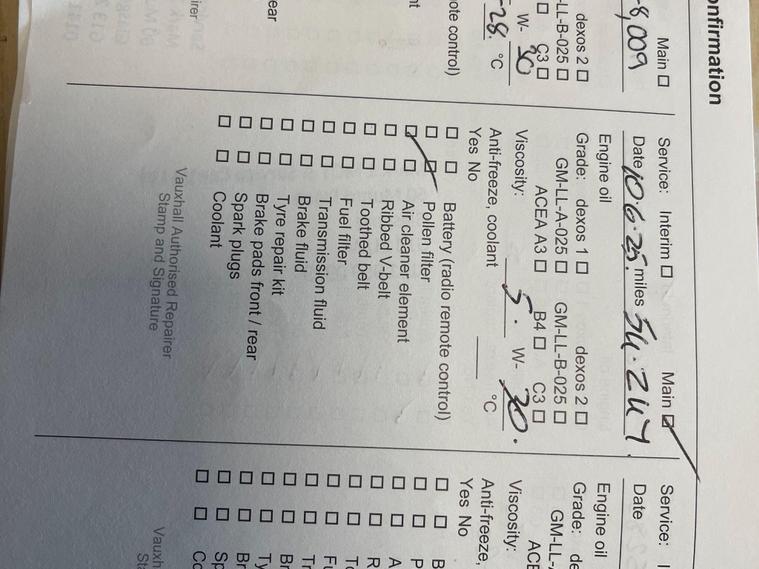 onfirmation
Main ☐
8,009
dexos 2 ☐
LL-B-025 ☐
☐ C3 ☐
W- 30
-28. °C
ote control)
nt
ear
irer
Service: Interim ☐ Main ☑
Date 10.6.25. miles 54.247.
Engine oil
Grade: dexos 1 ☐ dexos 2 ☐
GM-LL-A-025 ☐ GM-LL-B-025 ☐
ACEA A3 ☐ B4 ☐ C3 ☐
Viscosity: 5. W- 30.
Anti-freeze, coolant ____ °C
Yes No
☐ ☐ Battery (radio remote control)
☐ ☑ Pollen filter
☑ ☐ Air cleaner element
☐ ☐ Ribbed V-belt
☐ ☐ Toothed belt
☐ ☐ Fuel filter
☐ ☐ Transmission fluid
☐ ☐ Brake fluid
☐ ☐ Tyre repair kit
☐ ☐ Brake pads front / rear
☐ ☐ Spark plugs
☐ ☐ Coolant
Vauxhall Authorised Repairer
Stamp and Signature
Service: I
Date
Engine oil
Grade: de
GM-LL-
ACE
Viscosity:
Anti-freeze,
Yes No
☐ ☐ B
☐ ☐ P
☐ ☐ A
☐ ☐ R
☐ ☐ To
☐ ☐ Fu
☐ ☐ Tr
☐ ☐ Br
☐ ☐ Ty
☐ ☐ Br
☐ ☐ Sp
☐ ☐ Co
Vauxh
Sta